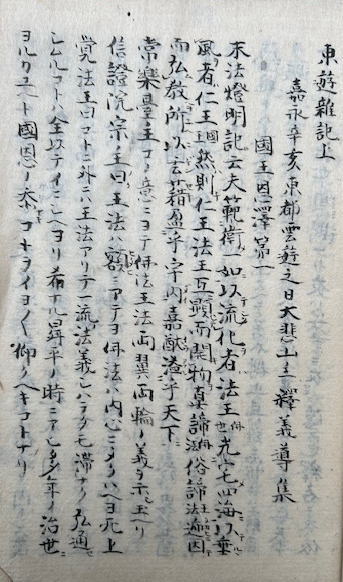 東遊雜記上
嘉永辛亥東都雲遊之日大悲山主釋義導集
國王恩澤第一
末法燈明記云夫範衛一如以流化者法王光宅四海以垂
風者仁王然則仁王法王互顯而開物真諦俗諦遞因
而弘教所以玄籍盈乎宇内嘉猷溢乎天下
常樂臺主王ノ意ニヨテ佛法王法両翼両輪ノ義ヲ示玉ヘリ
信證院宗主曰王法ハ額ニアテヨ佛法ハ内心ニ
覚法王曰コトニ外ニハ王法アリテ一流法義シハラクモ滞ナク弘通
シムルコト全以テイニシヘヨリ希ナル昇平ノ時ニアヒ年ノ治世
ヨルクユヘト國恩ノ忝コトヲイヨイヨ仰クヘキコトナリ